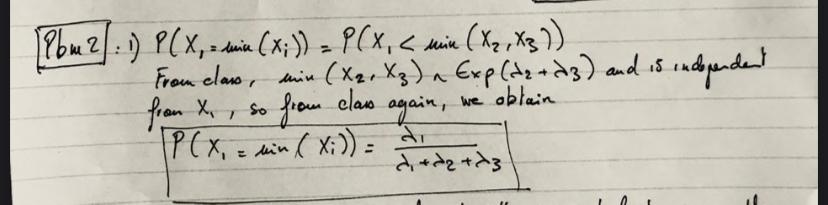 Pbm 2 : 1) P(X₁ = min (Xᵢ)) = P(X₁ < min (X₂, X₃))
From class, min (X₂, X₃) ~ Exp(λ₂ + λ₃) and is independent
from X₁, so from class again, we obtain
P(X₁ = min (Xᵢ)) = λ₁ / (λ₁ + λ₂ + λ₃)